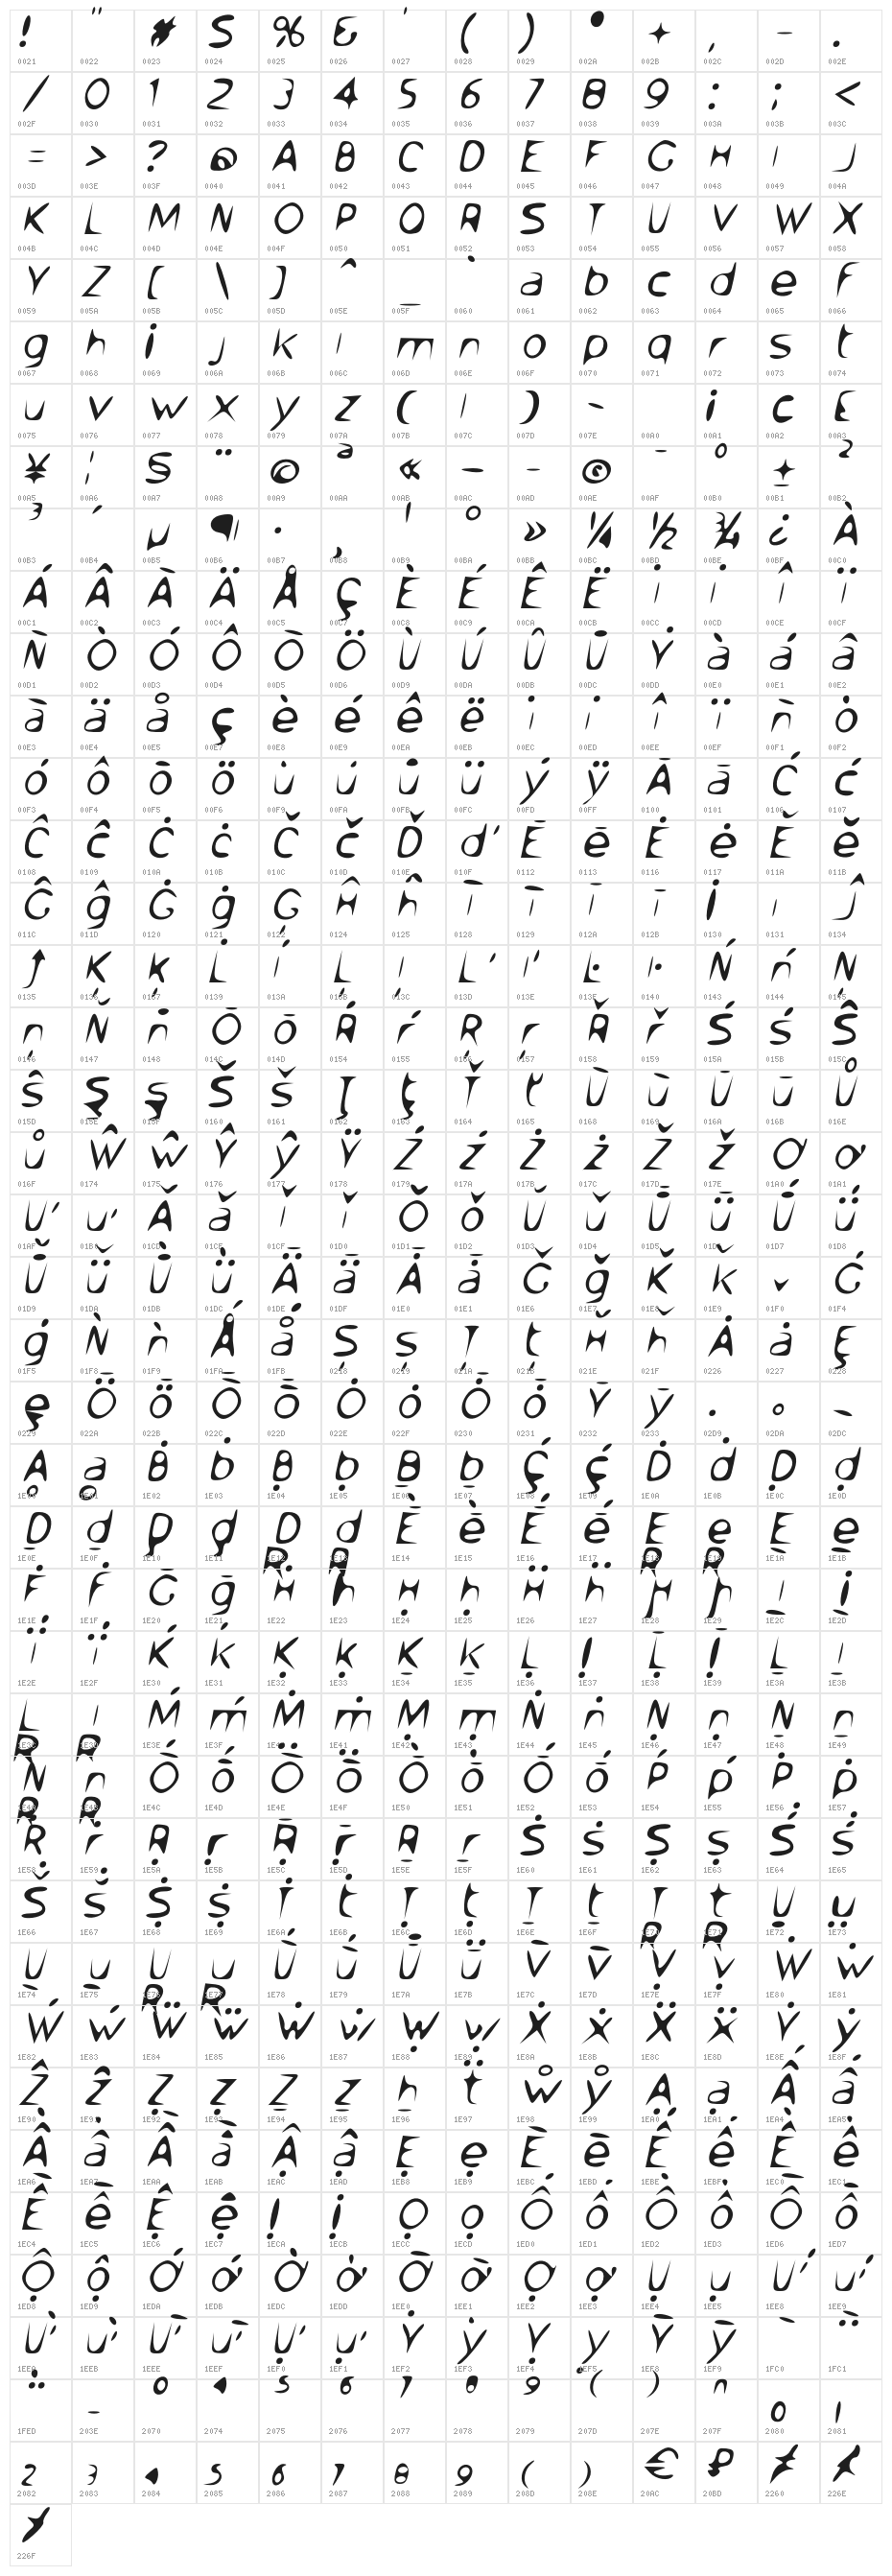 ! " # $ % & ' ( ) * + , - .
0021 0022 0023 0024 0025 0026 0027 0028 0029 002A 002B 002C 002D 002E
/ 0 1 2 3 4 5 6 7 8 9 : ; <
002F 0030 0031 0032 0033 0034 0035 0036 0037 0038 0039 003A 003B 003C
= > ? @ A B C D E F G H I J
003D 003E 003F 0040 0041 0042 0043 0044 0045 0046 0047 0048 0049 004A
K L M N O P Q R S T U V W X
004B 004C 004D 004E 004F 0050 0051 0052 0053 0054 0055 0056 0057 0058
Y Z [ \ ] ^ _ ` a b c d e f
0059 005A 005B 005C 005D 005E 005F 0060 0061 0062 0063 0064 0065 0066
g h i j k l m n o p q r s t
0067 0068 0069 006A 006B 006C 006D 006E 006F 0070 0071 0072 0073 0074
u v w x y z { | } ~ ¡ ¢ £
0075 0076 0077 0078 0079 007A 007B 007C 007D 007E 00A0 00A1 00A2 00A3
¥ ¦ § ¨ © ª « ¬ - ® ¯ ° ± ²
00A5 00A6 00A7 00A8 00A9 00AA 00AB 00AC 00AD 00AE 00AF 00B0 00B1 00B2
³ ´ µ ¶ · ¸ ¹ º » ¼ ½ ¾ ¿ À
00B3 00B4 00B5 00B6 00B7 00B8 00B9 00BA 00BB 00BC 00BD 00BE 00BF 00C0
Á Â Ã Ä Å Ç È É Ê Ë Ì Í Î Ï
00C1 00C2 00C3 00C4 00C5 00C7 00C8 00C9 00CA 00CB 00CC 00CD 00CE 00CF
Ñ Ò Ó Ô Õ Ö Ù Ú Û Ü Ý à á â
00D1 00D2 00D3 00D4 00D5 00D6 00D9 00DA 00DB 00DC 00DD 00E0 00E1 00E2
ã ä å ç è é ê ë ì í î ï ñ ò
00E3 00E4 00E5 00E7 00E8 00E9 00EA 00EB 00EC 00ED 00EE 00EF 00F1 00F2
ó ô õ ö ù ú û ü ý ÿ Ā ā Ć ć
00F3 00F4 00F5 00F6 00F9 00FA 00FB 00FC 00FD 00FF 0100 0101 0106 0107
Ĉ ĉ Ċ ċ Č č Ď ď Ē ē Ė ė Ě ě
0108 0109 010A 010B 010C 010D 010E 010F 0112 0113 0116 0117 011A 011B
Ĝ ĝ Ġ ġ Ģ Ĥ ĥ Ĩ ĩ Ī ī İ ı Ĵ
011C 011D 0120 0121 0122 0124 0125 0128 0129 012A 012B 0130 0131 0134
ĵ Ķ ķ Ĺ ĺ Ļ ļ Ľ ľ Ŀ ŀ Ń ń Ņ
0135 0136 0137 0139 013A 013B 013C 013D 013E 013F 0140 0143 0144 0145
ņ Ň ň Ō ō Ŕ ŕ Ŗ ŗ Ř ř Ś ś Ŝ
0146 0147 0148 014C 014D 0154 0155 0156 0157 0158 0159 015A 015B 015C
ŝ Ş ş Š š Ţ ţ Ť ť Ũ ũ Ū ū Ů
015D 015E 015F 0160 0161 0162 0163 0164 0165 0168 0169 016A 016B 016E
ů Ŵ ŵ Ŷ ŷ Ÿ Ź ź Ż ż Ž ž Ơ ơ
016F 0174 0175 0176 0177 0178 0179 017A 017B 017C 017D 017E 01A0 01A1
Ư ư Ǎ ǎ Ǐ ǐ Ǒ ǒ Ǔ ǔ Ǖ ǖ Ǘ ǘ
01AF 01B0 01CD 01CE 01CF 01D0 01D1 01D2 01D3 01D4 01D5 01D6 01D7 01D8
Ǚ ǚ Ǜ ǜ Ǟ ǟ Ǡ ǡ Ǧ ǧ Ǩ ǩ ǰ Ǵ
01D9 01DA 01DB 01DC 01DE 01DF 01E0 01E1 01E6 01E7 01E8 01E9 01F0 01F4
ǵ Ǹ ǹ Ǻ ǻ Ș ș Ț ț Ȟ ȟ Ȧ ȧ Ȩ
01F5 01F8 01F9 01FA 01FB 0218 0219 021A 021B 021E 021F 0226 0227 0228
ȩ Ȫ ȫ Ȭ ȭ Ȯ ȯ Ȱ ȱ Ȳ ȳ ˙ ˚ ˜
0229 022A 022B 022C 022D 022E 022F 0230 0231 0232 0233 02D9 02DA 02DC
Ḁ ḁ Ḃ ḃ Ḅ ḅ Ḇ ḇ Ḉ ḉ Ḋ ḋ Ḍ ḍ
1E00 1E01 1E02 1E03 1E04 1E05 1E06 1E07 1E08 1E09 1E0A 1E0B 1E0C 1E0D
Ḏ ḏ Ḑ ḑ Ḓ ḓ Ḕ ḕ Ḗ ḗ Ḙ ḙ Ḛ ḛ
1E0E 1E0F 1E10 1E11 1E12 1E13 1E14 1E15 1E16 1E17 1E18 1E19 1E1A 1E1B
Ḟ ḟ Ḡ ḡ Ḣ ḣ Ḥ ḥ Ḧ ḧ Ḩ ḩ Ḭ ḭ
1E1E 1E1F 1E20 1E21 1E22 1E23 1E24 1E25 1E26 1E27 1E28 1E29 1E2C 1E2D
Ḯ ḯ Ḱ ḱ Ḳ ḳ Ḵ ḵ Ḷ ḷ Ḹ ḹ Ḻ ḻ
1E2E 1E2F 1E30 1E31 1E32 1E33 1E34 1E35 1E36 1E37 1E38 1E39 1E3A 1E3B
Ḽ ḽ Ḿ ḿ Ṁ ṁ Ṃ ṃ Ṅ ṅ Ṇ ṇ Ṉ ṉ
1E3C 1E3D 1E3E 1E3F 1E40 1E41 1E42 1E43 1E44 1E45 1E46 1E47 1E48 1E49
Ṋ ṋ Ṍ ṍ Ṏ ṏ Ṑ ṑ Ṓ ṓ Ṕ ṕ Ṗ ṗ
1E4A 1E4B 1E4C 1E4D 1E4E 1E4F 1E50 1E51 1E52 1E53 1E54 1E55 1E56 1E57
Ṙ ṙ Ṛ ṛ Ṝ ṝ Ṟ ṟ Ṡ ṡ Ṣ ṣ Ṥ ṥ
1E58 1E59 1E5A 1E5B 1E5C 1E5D 1E5E 1E5F 1E60 1E61 1E62 1E63 1E64 1E65
Ṧ ṧ Ṩ ṩ Ṫ ṫ Ṭ ṭ Ṯ ṯ Ṱ ṱ Ṳ ṳ
1E66 1E67 1E68 1E69 1E6A 1E6B 1E6C 1E6D 1E6E 1E6F 1E70 1E71 1E72 1E73
Ṵ ṵ Ṷ ṷ Ṹ ṹ Ṻ ṻ Ṽ ṽ Ṿ ṿ Ẁ ẁ
1E74 1E75 1E76 1E77 1E78 1E79 1E7A 1E7B 1E7C 1E7D 1E7E 1E7F 1E80 1E81
Ẃ ẃ Ẅ ẅ Ẇ ẇ Ẉ ẉ Ẋ ẋ Ẍ ẍ Ẏ ẏ
1E82 1E83 1E84 1E85 1E86 1E87 1E88 1E89 1E8A 1E8B 1E8C 1E8D 1E8E 1E8F
Ẑ ẑ Ẓ ẓ Ẕ ẕ ẖ ẗ ẘ ẙ Ạ ạ Ấ ấ
1E90 1E91 1E92 1E93 1E94 1E95 1E96 1E97 1E98 1E99 1EA0 1EA1 1EA4 1EA5
Ầ ầ Ẫ ẫ Ậ ậ Ẹ ẹ Ẽ ẽ Ế ế Ề ề
1EA6 1EA7 1EAA 1EAB 1EAC 1EAD 1EB8 1EB9 1EBC 1EBD 1EBE 1EBF 1EC0 1EC1
Ễ ễ Ệ ệ Ị ị Ọ ọ Ố ố Ồ ồ Ỗ ỗ
1EC4 1EC5 1EC6 1EC7 1ECA 1ECB 1ECC 1ECD 1ED0 1ED1 1ED2 1ED3 1ED6 1ED7
Ộ ộ Ớ ớ Ờ ờ Ỡ ỡ Ợ ợ Ụ ụ Ứ ứ
1ED8 1ED9 1EDA 1EDB 1EDC 1EDD 1EE0 1EE1 1EE2 1EE3 1EE4 1EE5 1EE8 1EE9
Ừ ừ Ữ ữ Ự ự Ỳ ỳ Ỵ ỵ Ỹ ỹ ῀ ῁
1EEA 1EEB 1EEE 1EEF 1EF0 1EF1 1EF2 1EF3 1EF4 1EF5 1EF8 1EF9 1FC0 1FC1
῭ ‾ ⁰ ⁴ ⁵ ⁶ ⁷ ⁸ ⁹ ⁽ ⁾ ⁿ ₀ ₁
1FED 203E 2070 2074 2075 2076 2077 2078 2079 207D 207E 207F 2080 2081
₂ ₃ ₄ ₅ ₆ ₇ ₈ ₉ ₍ ₎ € ₽ ≠ ≮
2082 2083 2084 2085 2086 2087 2088 2089 208D 208E 20AC 20BD 2260 226E
≯
226F